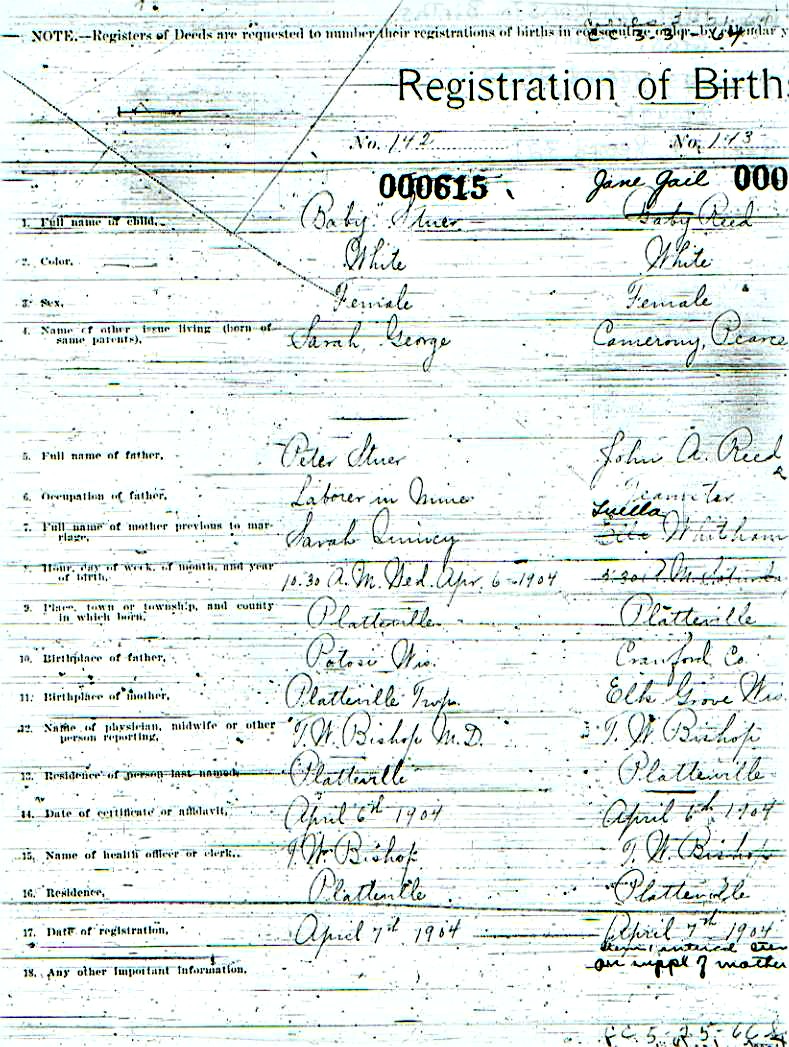 NOTE.—Registers of Deeds are requested to number their registrations of births in consecutive order by calendar y
Registration of Births
No. 142 No. 143
000615 Jane Gail 000
1. Full name of child, Baby Stuer Baby Reed
2. Color, White White
3. Sex, Female Female
4. Name of other issue living (born of same parents), Sarah, George Camerony, Pearce
5. Full name of father, Peter Stuer John A. Reed
6. Occupation of father, Laborer in Mine Teamster
Luella
7. Full name of mother previous to marriage, Sarah Quincy Whitham
8. Hour, day of week, of month, and year of birth, 10.30 A.M. Wed. Apr. 6-1904 5:30 P.M. Saturda
9. Place, town or township, and county in which born, Platteville Platteville
10. Birthplace of father, Potosi Wis. Crawford Co.
11. Birthplace of mother, Platteville Twp. Elk Grove Wis
12. Name of physician, midwife or other person reporting, T. W. Bishop M.D. T. W. Bishop
13. Residence of person last named, Platteville Platteville
14. Date of certificate or affidavit, April 6th 1904 April 6th 1904
15. Name of health officer or clerk, T. W. Bishop T. W. Bishop
16. Residence, Platteville Platteville
17. Date of registration, April 7th 1904 April 7th 1904
on suppl of mother
18. Any other important information.